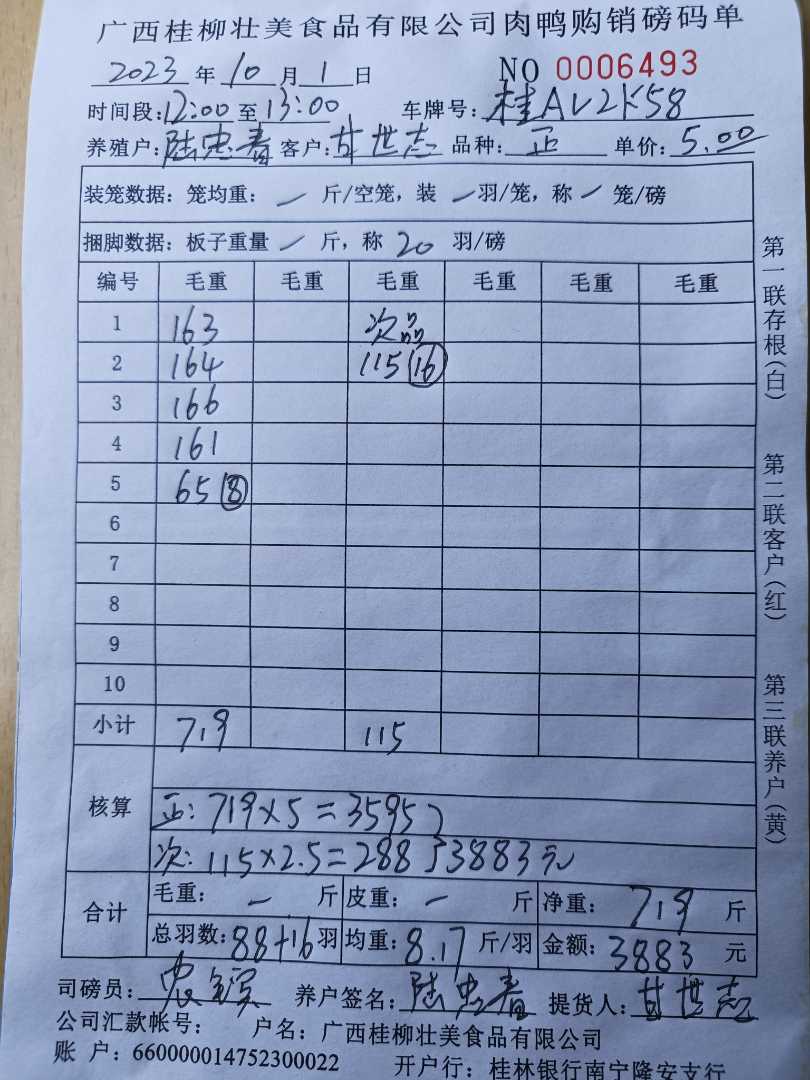 广西桂柳壮美食品有限公司肉鸭购销磅码单
2023 年 10 月 1 日 NO 0006493
时间段:12:00 至 13:00 车牌号: 桂AV2K58
养殖户: 陆忠春 客户: 甘世志 品种: 正 单价: 5.00
装笼数据: 笼均重: — 斤/空笼, 装 — 羽/笼, 称 — 笼/磅
捆脚数据: 板子重量 — 斤, 称 20 羽/磅
编号 毛重 毛重 毛重 毛重 毛重 毛重
1 163 次品
2 164 115 16
3 166
4 161
5 65 8
6
7
8
9
10
小计 719 115
核算
正: 719×5=3595
次: 115×2.5=288 3883元
合计
毛重: — 斤 皮重: — 斤 净重: 719 斤
总羽数: 88+16 羽 均重: 8.17 斤/羽 金额: 3883 元
司磅员: 农 养户签名: 陆忠春 提货人: 甘世志
公司汇款帐号: 户名: 广西桂柳壮美食品有限公司
账 户: 660000014752300022 开户行: 桂林银行南宁隆安支行
第一联存根(白)
第二联客户(红)
第三联养户(黄)